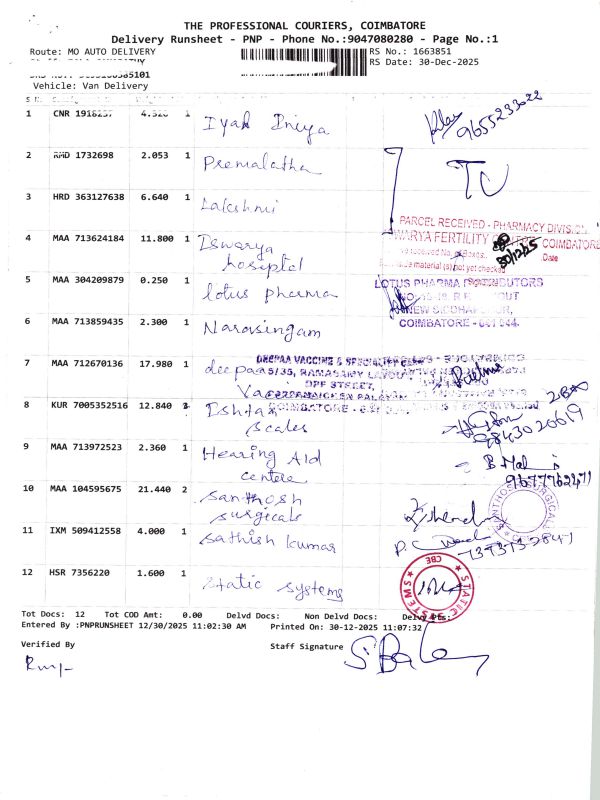 THE PROFESSIONAL COURIERS, COIMBATORE
Delivery Runsheet - PNP - Phone No.:9047080280 - Page No.:1
Route: MO AUTO DELIVERY
RS No.: 1663851
RS Date: 30-Dec-2025
Vehicle: Van Delivery
1 CNR 1918257 4.320 1 Iyal Iniya
9655233022
2 RMD 1732698 2.053 1 Premalatha
3 HRD 363127638 6.640 1 Lakshmi
PARCEL RECEIVED - PHARMACY DIVISI
4 MAA 713624184 11.800 1 Iswarya
hospital
WARYA FERTILITY COIMBATORE
30/12/25
Date
material (s) not yet checked
5 MAA 304209879 0.250 1 lotus pharma
LOTUS PHARMA DISTRIBUTORS
COIMBATORE - 641 044.
6 MAA 713859435 2.300 1 Narasingam
7 MAA 712670136 17.980 1 deepaa
DEEPAA VACCINE & SPECIALITY
9/35, RAMASAMY LAYOUT
OPP STREET,
COIMBATORE
8 KUR 7005352516 12.840 Ishtaa
Scales
9843020619
9 MAA 713972523 2.360 1 Hearing Aid
centre
9677762471
10 MAA 104595675 21.440 2 Santhosh
surgicals
11 IXM 509412558 4.000 1 Sathish kumar
12 HSR 7356220 1.600 1 Static systems
STATIC SYSTEMS CBE
Tot Docs: 12 Tot COD Amt: 0.00 Delvd Docs: Non Delvd Docs: Delvy Pts:
Entered By :PNPRUNSHEET 12/30/2025 11:02:30 AM Printed On: 30-12-2025 11:07:32
Verified By
Staff Signature